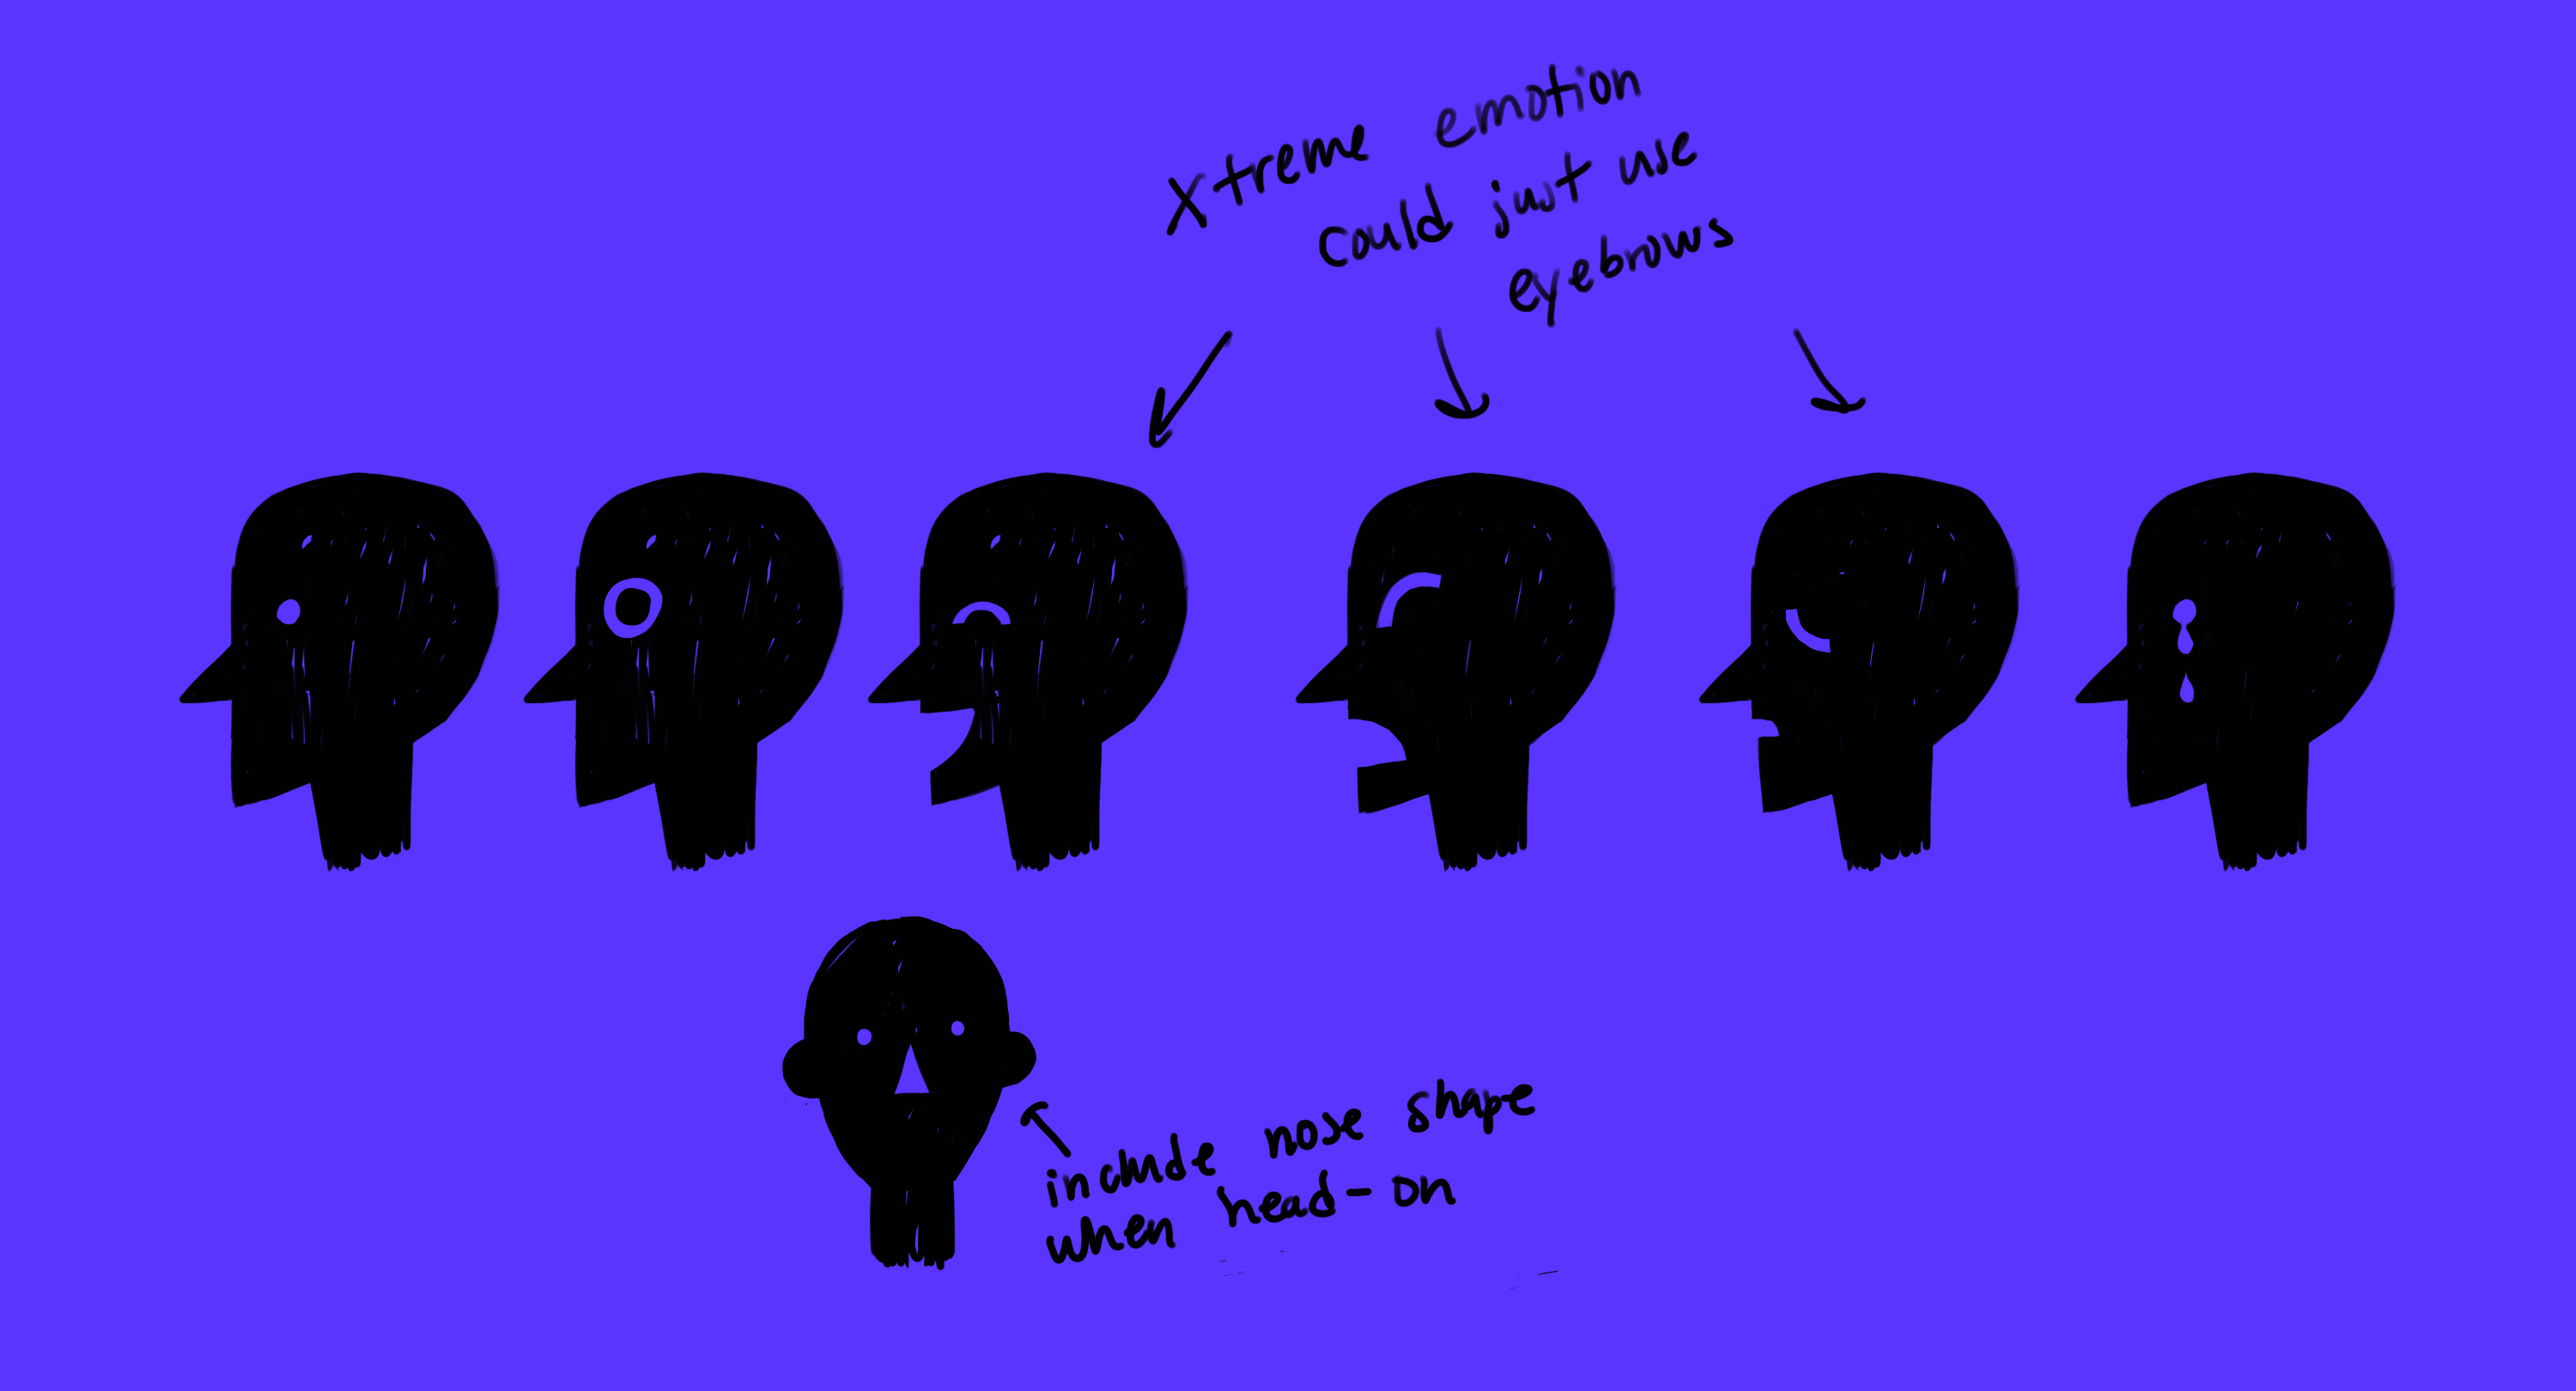 Xtreme emotion
could just use
eyebrows
include nose shape
when head-on